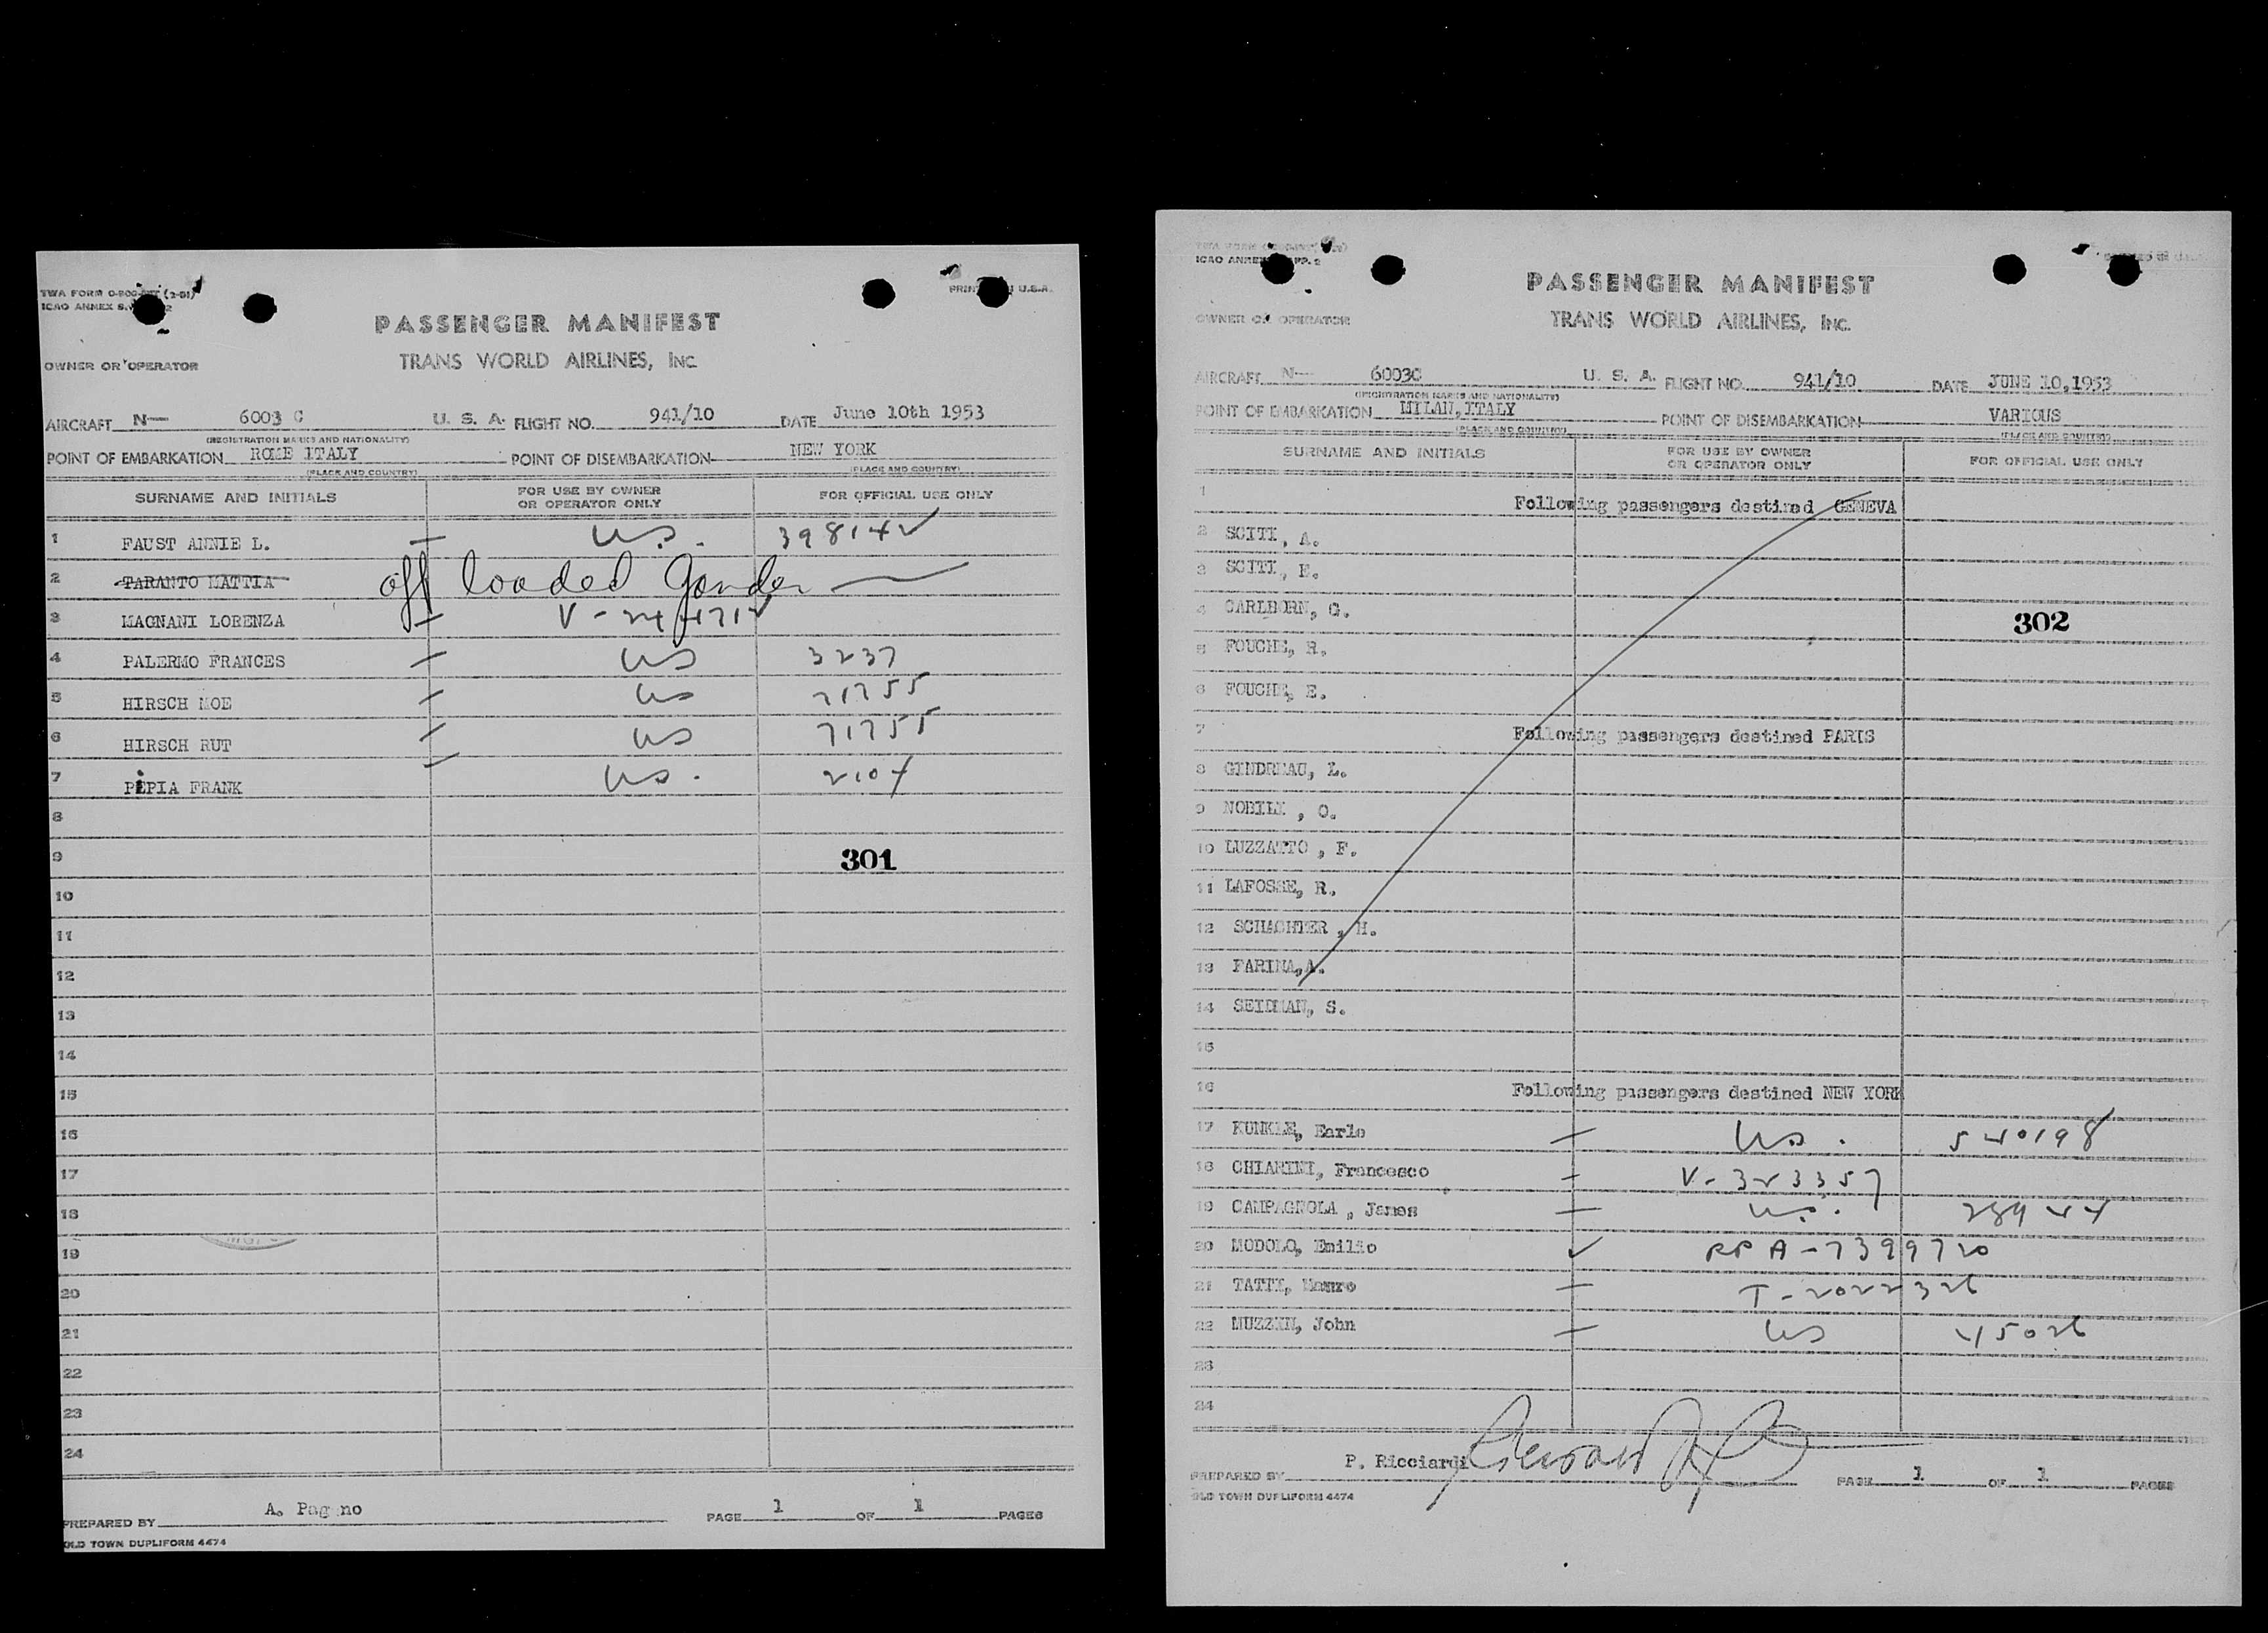 TWA FORM O-800- (2-51)
ICAO ANNEX 9,
PRINTED IN U.S.A.
PASSENGER MANIFEST
OWNER OR OPERATOR
TRANS WORLD AIRLINES, INC.
AIRCRAFT N— 6003 C U. S. A. FLIGHT NO. 941/10 DATE June 10th 1953
(REGISTRATION MARKS AND NATIONALITY)
POINT OF EMBARKATION ROME ITALY POINT OF DISEMBARKATION NEW YORK
(PLACE AND COUNTRY) (PLACE AND COUNTRY)
SURNAME AND INITIALS FOR USE BY OWNER OR OPERATOR ONLY FOR OFFICIAL USE ONLY
1 FAUST ANNIE L. — U.S. 398142
2 TARANTO MATTIA off loaded Gander
3 MAGNANI LORENZA — V-244712
4 PALERMO FRANCES — US 3237
5 HIRSCH MOE — US 71755
6 HIRSCH RUT — US 71755
7 PIPIA FRANK — US. 2104
8
9 301
10
11
12
13
14
15
16
17
18
19
20
21
22
23
24
PREPARED BY A. Pag no PAGE 1 OF 1 PAGES
OLD TOWN DUPLIFORM 4474
ICAO ANNEX APP. 2
PASSENGER MANIFEST
OWNER OR OPERATOR
TRANS WORLD AIRLINES, INC.
AIRCRAFT N— 6003C U. S. A. FLIGHT NO. 941/10 DATE JUNE 10,1953
(REGISTRATION MARKS AND NATIONALITY)
POINT OF EMBARKATION MILAN,ITALY POINT OF DISEMBARKATION VARIOUS
(PLACE AND COUNTRY) (PLACE AND COUNTRY)
SURNAME AND INITIALS FOR USE BY OWNER OR OPERATOR ONLY FOR OFFICIAL USE ONLY
1 Following passengers destined GENEVA
2 SCITI, A.
3 SCITI, E.
4 CARLBORN, G. 302
5 FOUCHE, R.
6 FOUCHE, E.
7 Following passengers destined PARIS
8 GINDREAU, L.
9 NOBILE , O.
10 LUZZATTO , F.
11 LAFOSSE, R.
12 SCHACHTER , H.
13 FARINA,A.
14 SEIDMAN, S.
15
16 Following passengers destined NEW YORK
17 KUNKLE, Earle — US. 540198
18 CHIARINI, Francesco — V-323357
19 CAMPAGNOLA , James — U.S. 28944
20 MODOLO, Emilio ✓ RP A-7399720
21 TATTI, Mauro — T-2022326
22 MUZZIN, John — US 45026
23
24
PREPARED BY P. Ricciardi PAGE 1 OF 1 PAGES
OLD TOWN DUPLIFORM 4474